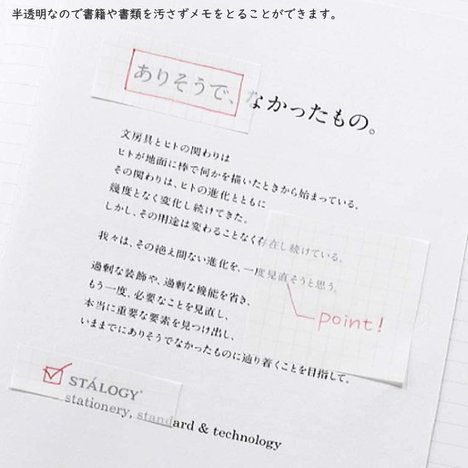 半透明なので書籍や書類を汚さずメモをとることができます。
ありそうで、なかったもの。
文房具とヒトの関わりは
ヒトが地面に棒で何かを描いたときから始まっている。
その関わりは、ヒトの進化とともに
幾度となく変化し続けてきた。
しかし、その用途は変わることなく存在し続けている。
我々は、その絶え間ない進化を、一度見直そうと思う。
point!
過剰な装飾や、過剰な機能を省き、
もう一度、必要なことを見直し、
本当に重要な要素を見つけ出し、
いままでにありそうでなかったものに辿り着くことを目指して。
STÁLOGY
stationery, standard & technology